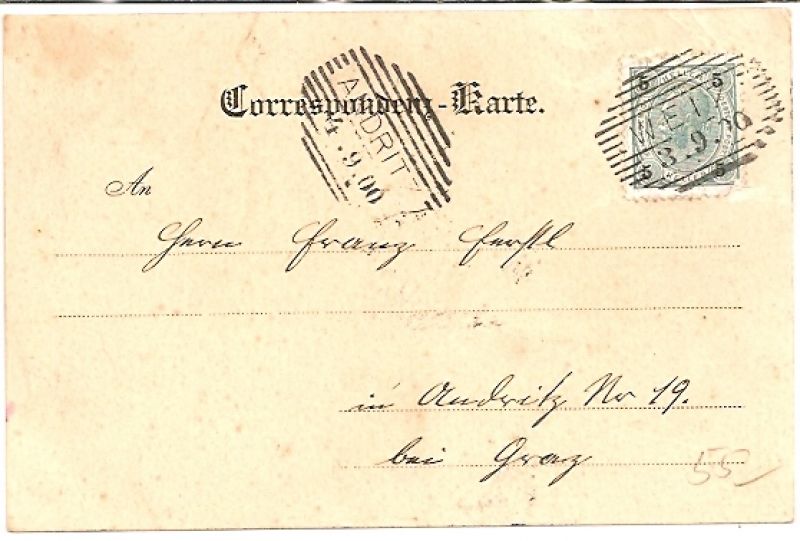 Correspondenz-Karte.
ANDRITZ
4.9.00
WEI
3.9.00
5 5
5 5
An
Herrn Franz Ferstl
in Andritz Nr 19.
bei Graz
55